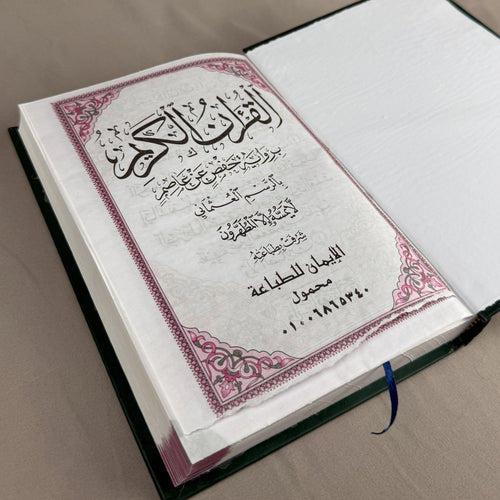 القرآن الكريم
برواية حفص عن عاصم
بالرسم العثماني
لا يمسه إلا المطهرون
شرف بطباعته
الإيمان للطباعة
محمول
٠١٠٠٦٨٦٥٣٤٠